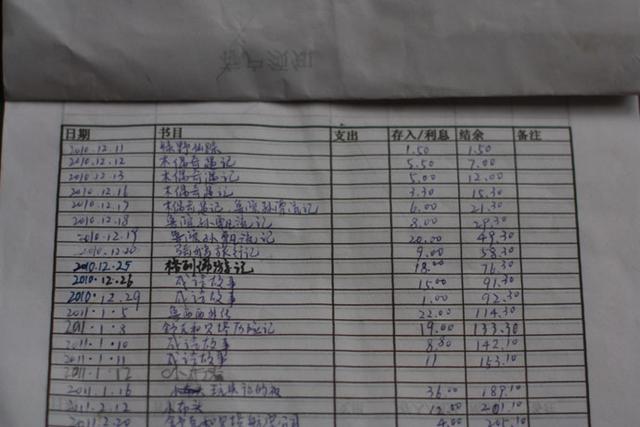 客户须知
日期 书目 支出 存入/利息 结余 备注
2010.12.11 绿野仙踪 1.50 1.50
2010.12.12 木偶奇遇记 5.50 7.00
2010.12.13 木偶奇遇记 5.00 12.00
2010.12.16 木偶奇遇记 3.30 15.30
2010.12.17 木偶奇遇记 鲁滨孙漂流记 6.00 21.30
2010.12.18 鲁滨孙漂流记 8.00 29.30
2010.12.19 鲁滨孙漂流记 20.00 49.30
2010.12.20 9.00 58.30
2010.12.25 格列佛游记 18.00 76.30
2010.12.26 成语故事 15.00 91.30
2010.12.29 成语故事 1.00 92.30
2011.1.5 鲁西西外传 22.00 114.30
2011.1.8 舒克和贝塔历险记 19.00 133.30
2011.1.10 成语故事 8.80 142.10
2011.1.11 成语故事 11 153.10
2011.1.12
2011.1.16 36.00 189.10
2011.2.12 小布头 12.00 201.10
2011.2.20 舒克和贝塔航空公司 4.00 205.10